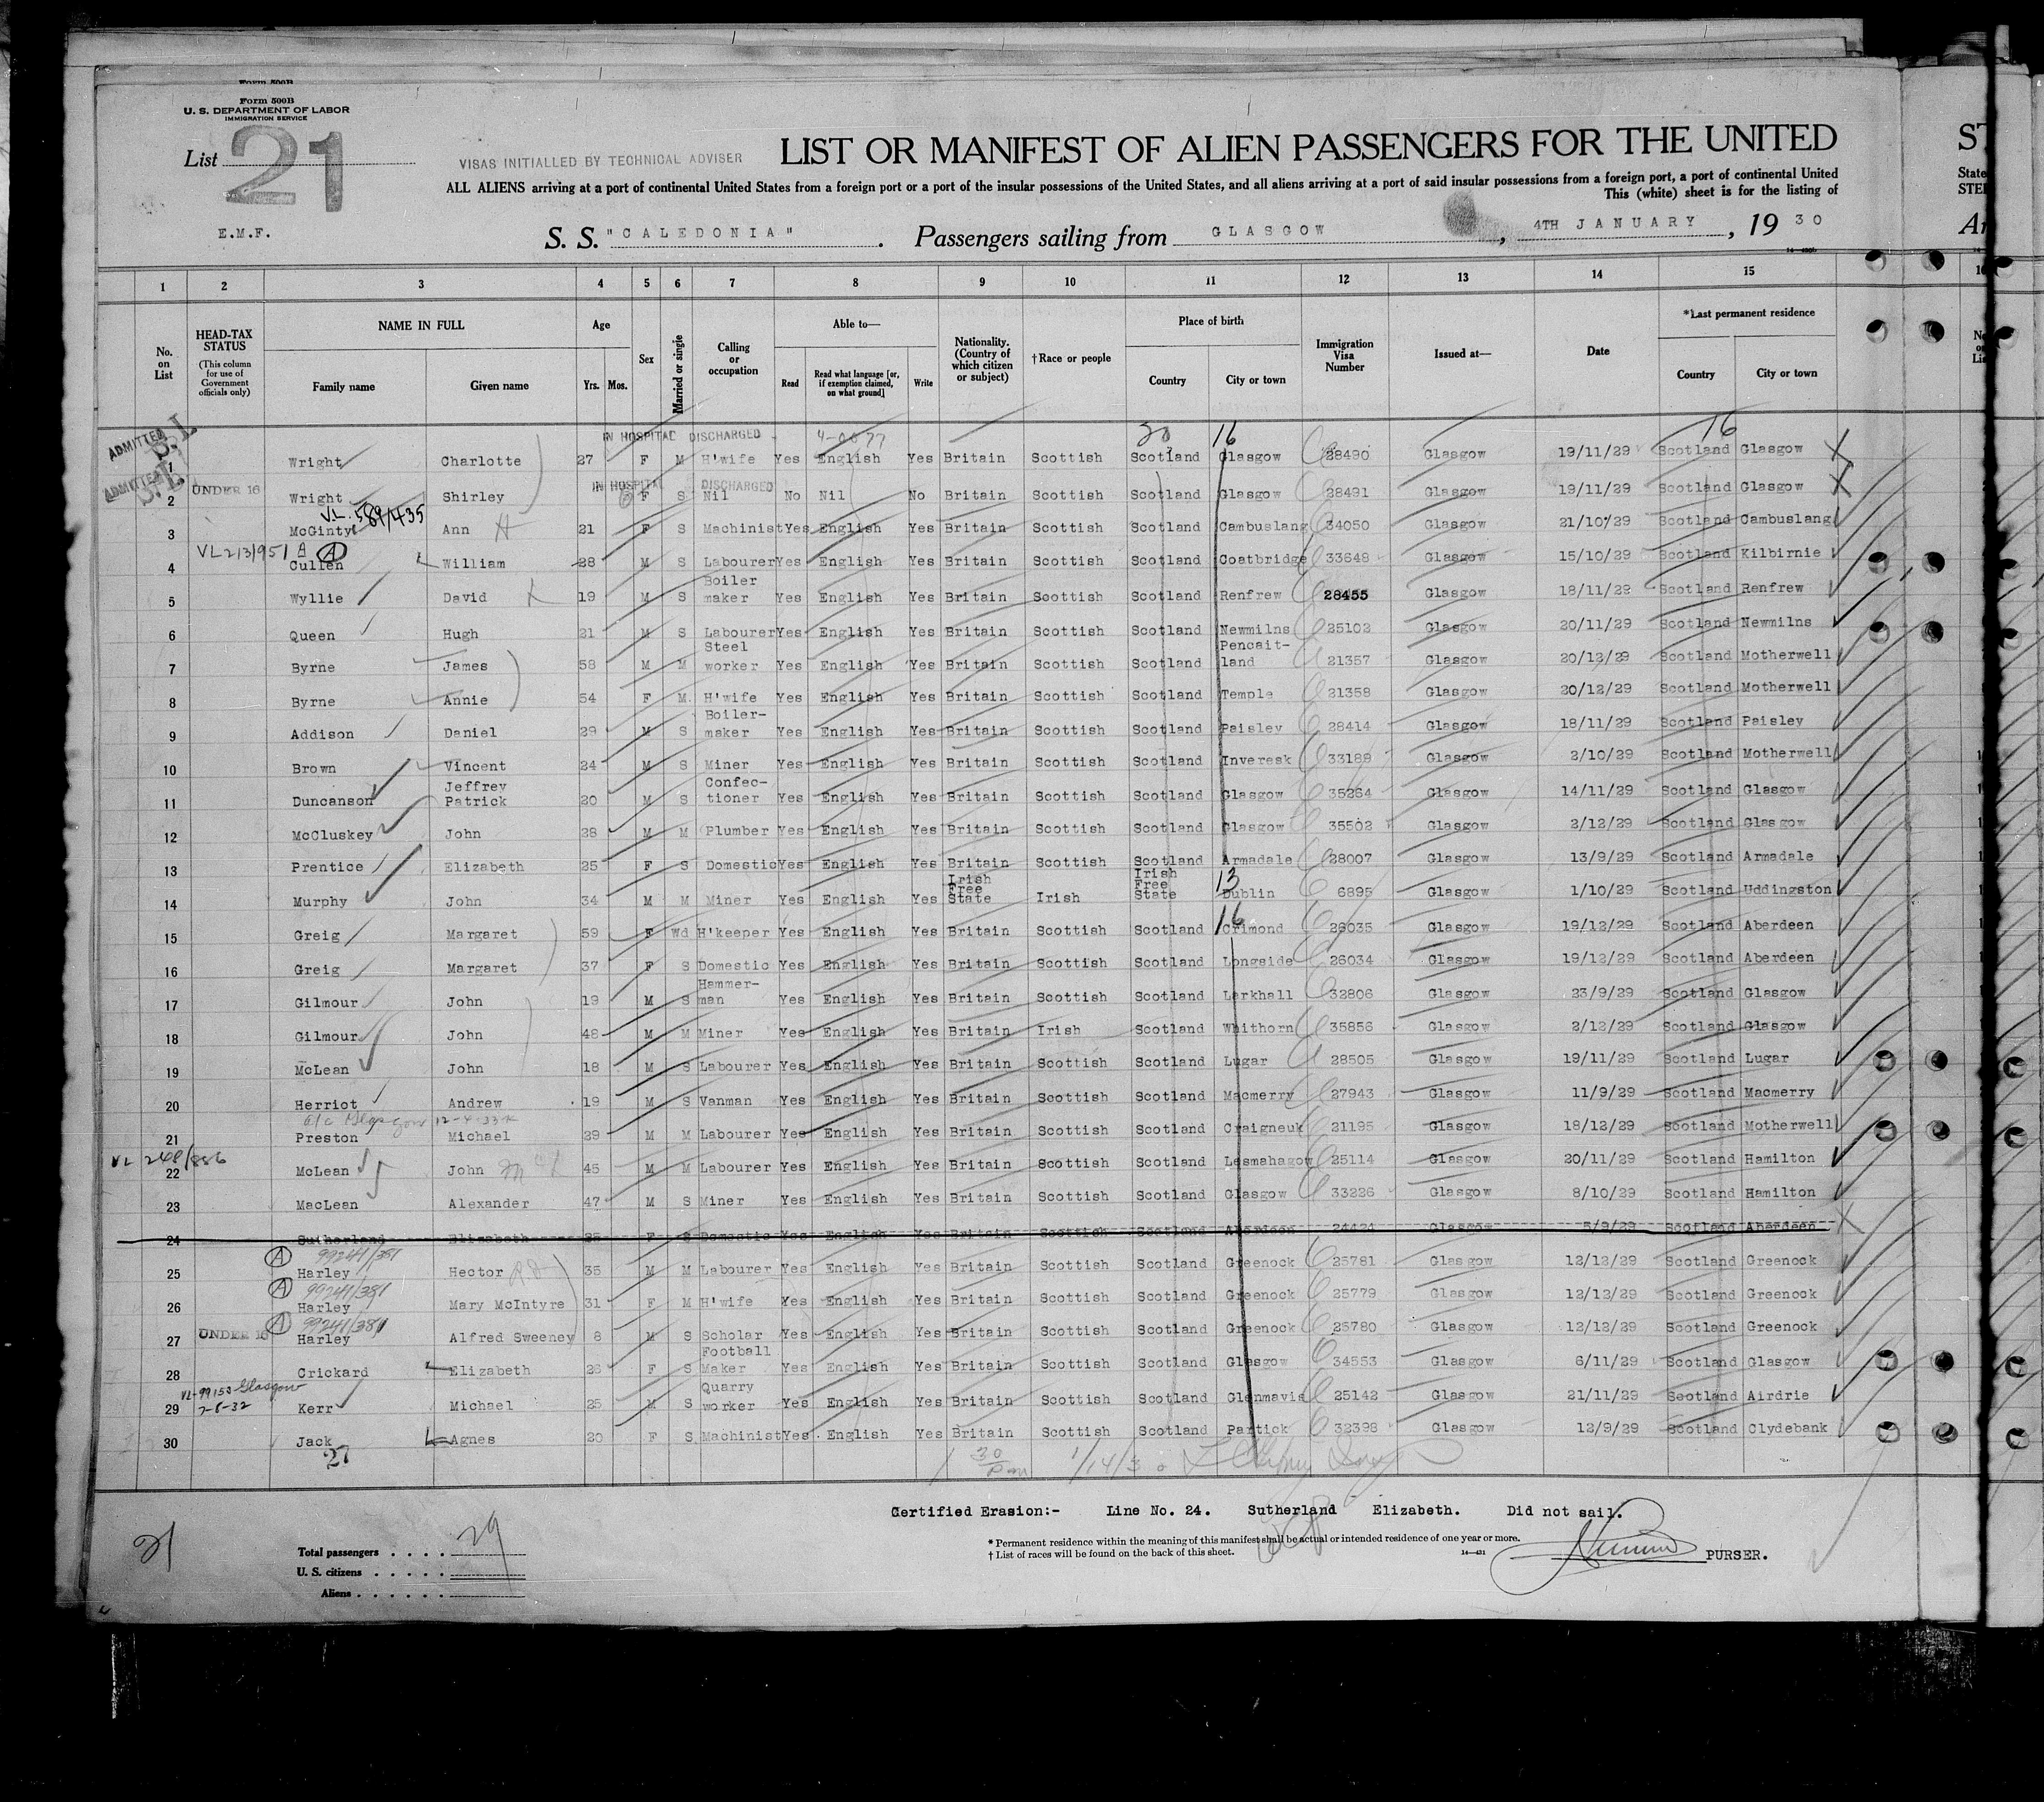 Form 500B
Form 500B
U. S. DEPARTMENT OF LABOR
IMMIGRATION SERVICE
List 21
VISAS INITIALLED BY TECHNICAL ADVISER
LIST OR MANIFEST OF ALIEN PASSENGERS FOR THE UNITED
ALL ALIENS arriving at a port of continental United States from a foreign port or a port of the insular possessions of the United States, and all aliens arriving at a port of said insular possessions from a foreign port, a port of continental United
This (white) sheet is for the listing of
E.M.F.
S. S. "CALEDONIA". Passengers sailing from GLASGOW, 4TH JANUARY, 1930
1 2 3 4 5 6 7 8 9 10 11 12 13 14 15
No. on List
HEAD-TAX STATUS (This column for use of Government officials only)
NAME IN FULL Family name Given name
Age Yrs. Mos.
Sex
Married or single
Calling or occupation
Able to— Read Read what language [or, if exemption claimed, on what ground] Write
Nationality. (Country of which citizen or subject)
†Race or people
Place of birth Country City or town
Immigration Visa Number
Issued at—
Date
*Last permanent residence Country City or town
ADMITTED S.I. IN HOSPITAL DISCHARGED 16 16
1 Wright Charlotte 27 F M H'wife Yes English Yes Britain Scottish Scotland Glasgow 28490 Glasgow 19/11/29 Scotland Glasgow
ADMITTED S.I. IN HOSPITAL DISCHARGED
2 UNDER 16 Wright Shirley 6 F S Nil No Nil No Britain Scottish Scotland Glasgow 28491 Glasgow 19/11/29 Scotland Glasgow
V.L. 589/435
3 McGinty Ann 21 F S Machinist Yes English Yes Britain Scottish Scotland Cambuslang 34050 Glasgow 21/10/29 Scotland Cambuslang
VL 213/951 A A
4 Cullen William 28 M S Labourer Yes English Yes Britain Scottish Scotland Coatbridge 33648 Glasgow 15/10/29 Scotland Kilbirnie
5 Wyllie David 19 M S Boiler maker Yes English Yes Britain Scottish Scotland Renfrew 28455 Glasgow 18/11/29 Scotland Renfrew
6 Queen Hugh 21 M S Labourer Yes English Yes Britain Scottish Scotland Newmilns 25102 Glasgow 20/11/29 Scotland Newmilns
7 Byrne James 58 M M Steel worker Yes English Yes Britain Scottish Scotland Pencait-land 21357 Glasgow 20/12/29 Scotland Motherwell
8 Byrne Annie 54 F M. H'wife Yes English Yes Britain Scottish Scotland Temple 21358 Glasgow 20/12/29 Scotland Motherwell
9 Addison Daniel 29 M S Boiler-maker Yes English Yes Britain Scottish Scotland Paisley 28414 Glasgow 18/11/29 Scotland Paisley
10 Brown Vincent 24 M S Miner Yes English Yes Britain Scottish Scotland Inveresk 33189 Glasgow 2/10/29 Scotland Motherwell
11 Duncanson Jeffrey Patrick 20 M S Confec-tioner Yes English Yes Britain Scottish Scotland Glasgow 35264 Glasgow 14/11/29 Scotland Glasgow
12 McCluskey John 28 M M Plumber Yes English Yes Britain Scottish Scotland Glasgow 35502 Glasgow 2/12/29 Scotland Glasgow
13 Prentice Elizabeth 25 F S Domestic Yes English Yes Britain Scottish Scotland Armadale 28007 Glasgow 13/9/29 Scotland Armadale
14 Murphy John 34 M M Miner Yes English Yes Irish Free State Irish Irish Free State 13 Dublin 6895 Glasgow 1/10/29 Scotland Uddingston
15 Greig Margaret 59 F Wd H'keeper Yes English Yes Britain Scottish Scotland 16 Crimond 26035 Glasgow 19/12/29 Scotland Aberdeen
16 Greig Margaret 37 F S Domestic Yes English Yes Britain Scottish Scotland Longside 26034 Glasgow 19/12/29 Scotland Aberdeen
17 Gilmour John 19 M S Hammer-man Yes English Yes Britain Scottish Scotland Larkhall 32806 Glasgow 23/9/29 Scotland Glasgow
18 Gilmour John 48 M M Miner Yes English Yes Britain Irish Scotland Whithorn 35856 Glasgow 2/12/29 Scotland Glasgow
19 McLean John 18 M S Labourer Yes English Yes Britain Scottish Scotland Lugar 28505 Glasgow 19/11/29 Scotland Lugar
20 Herriot Andrew 19 M S Vanman Yes English Yes Britain Scottish Scotland Macmerry 27943 Glasgow 11/9/29 Scotland Macmerry
Glasgow
21 Preston Michael 29 M M Labourer Yes English Yes Britain Scottish Scotland Craigneuk 21195 Glasgow 18/12/29 Scotland Motherwell
VL 248/886
22 McLean John 45 M M Labourer Yes English Yes Britain Scottish Scotland Lesmahagow 25114 Glasgow 20/11/29 Scotland Hamilton
23 MacLean Alexander 47 M S Miner Yes English Yes Britain Scottish Scotland Glasgow 33226 Glasgow 8/10/29 Scotland Hamilton
24 Sutherland Elizabeth 25 F S Domestic Yes English Yes Britain Scottish Scotland Aberdeen 24424 Glasgow 5/9/29 Scotland Aberdeen
A 99241/381
25 Harley Hector 35 M M Labourer Yes English Yes Britain Scottish Scotland Greenock 25781 Glasgow 12/12/29 Scotland Greenock
A 99241/381
26 Harley Mary McIntyre 31 F M H'wife Yes English Yes Britain Scottish Scotland Greenock 25779 Glasgow 12/12/29 Scotland Greenock
A 99241/381
27 UNDER 16 Harley Alfred Sweeney 8 M S Scholar Yes English Yes Britain Scottish Scotland Greenock 25780 Glasgow 12/12/29 Scotland Greenock
28 Crickard Elizabeth 26 F S Football Maker Yes English Yes Britain Scottish Scotland Glasgow 34553 Glasgow 6/11/29 Scotland Glasgow
VL-99153 Glasgow
29 7-8-32 Kerr Michael 25 M S Quarry worker Yes English Yes Britain Scottish Scotland Glenmavis 25142 Glasgow 21/11/29 Scotland Airdrie
30 Jack Agnes 20 F S Machinist Yes English Yes Britain Scottish Scotland Partick 32398 Glasgow 12/9/29 Scotland Clydebank
27
1/14/30
Certified Erasion:- Line No. 24. Sutherland Elizabeth. Did not sail.
* Permanent residence within the meaning of this manifest shall be actual or intended residence of one year or more.
† List of races will be found on the back of this sheet.
14—431
PURSER.
21
Total passengers . . . . 29
U. S. citizens . . . . .
Aliens . . . . . .